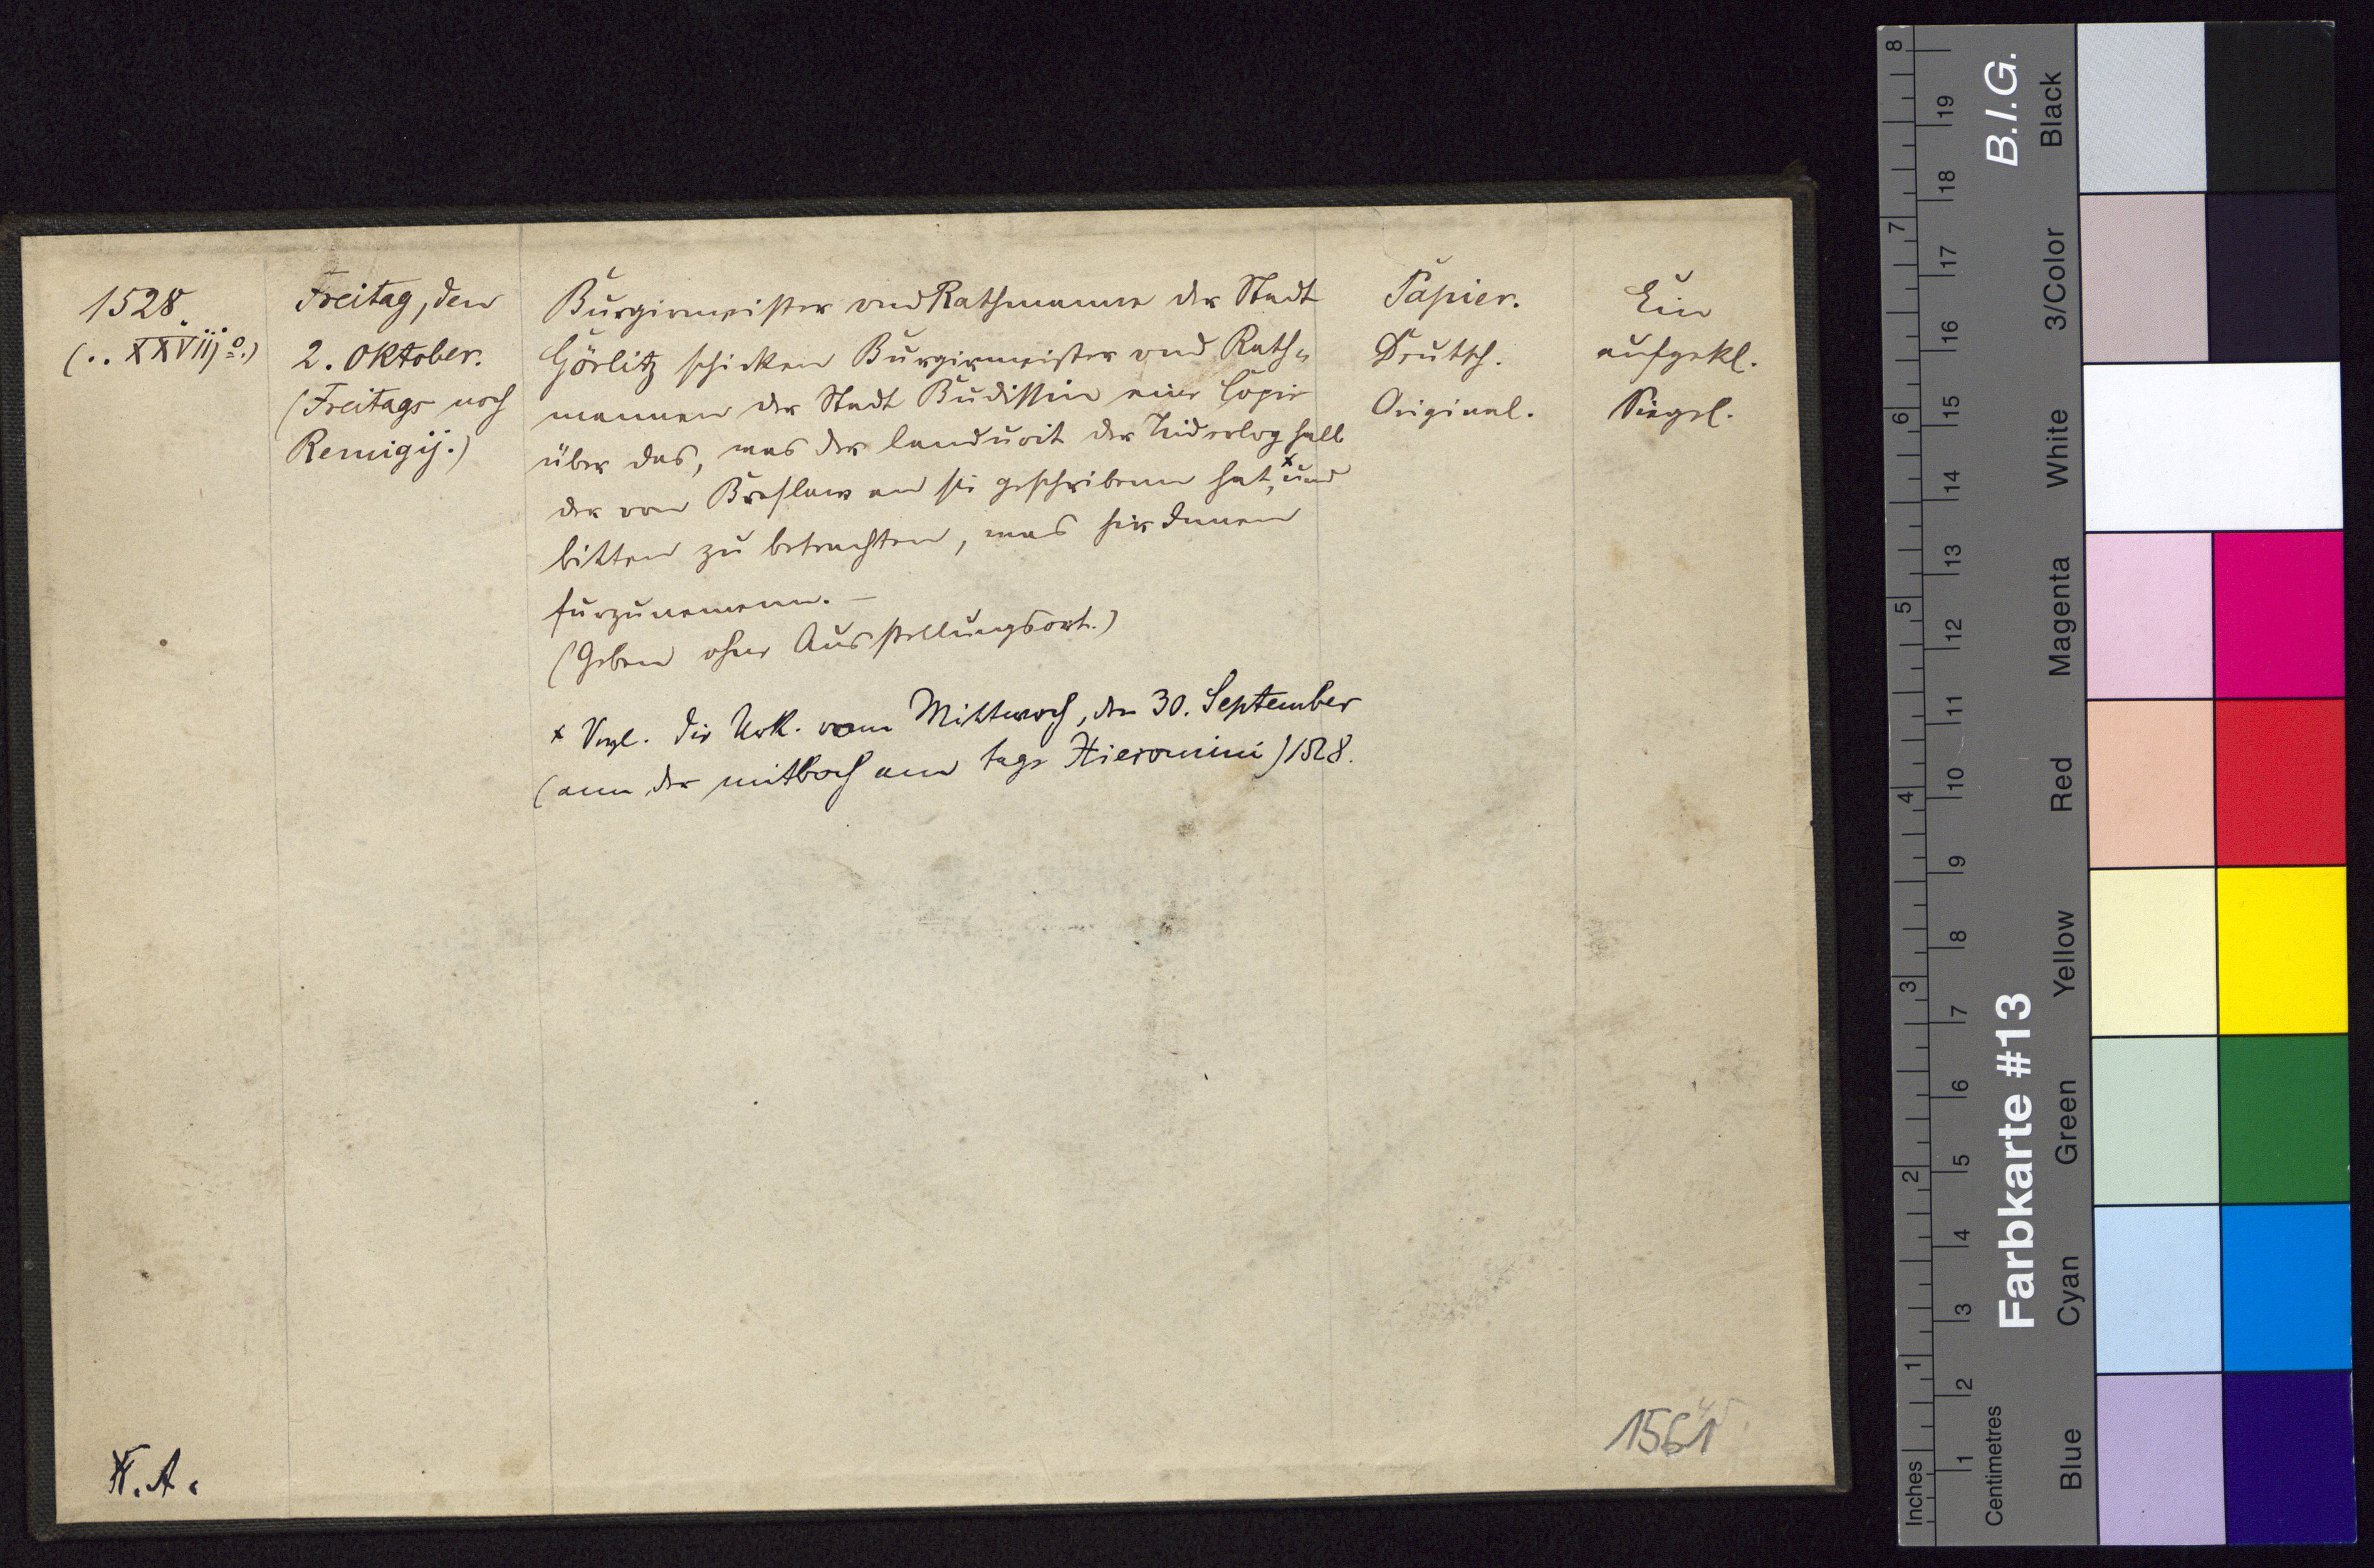 1528.
(.. XXViij o.)
Freitag, den
2. Oktober.
(Freitags noch
Remigij.)
Burgirmeister vnd Rathmanne der Stadt
Görlitz schicken Burgirmeister vnd Rath=
mannen der Stadt Budissin eine Copie
über das, was der landuoit der Niderlog halb
der von Breslaw an sie geschribenn hat,x und
bitten zu betrachten, was hir Innen
furzunemenn. —
(Geben ohne Ausstellungsort.)
x Vergl. die Urk. vom Mittwoch, den 30. September
(ann der mitboch am tage Hieronimi) 1528.
Papier.
Deutsch.
Original.
Ein
aufgekl.
Siegel.
A.
1561
8
7
6
5
4
3
2
1
Inches
19
18
17
16
15
14
13
12
11
10
9
8
7
6
5
4
3
2
1
Centimetres
B.I.G.
Farbkarte #13
Black
3/Color
White
Magenta
Red
Yellow
Green
Cyan
Blue